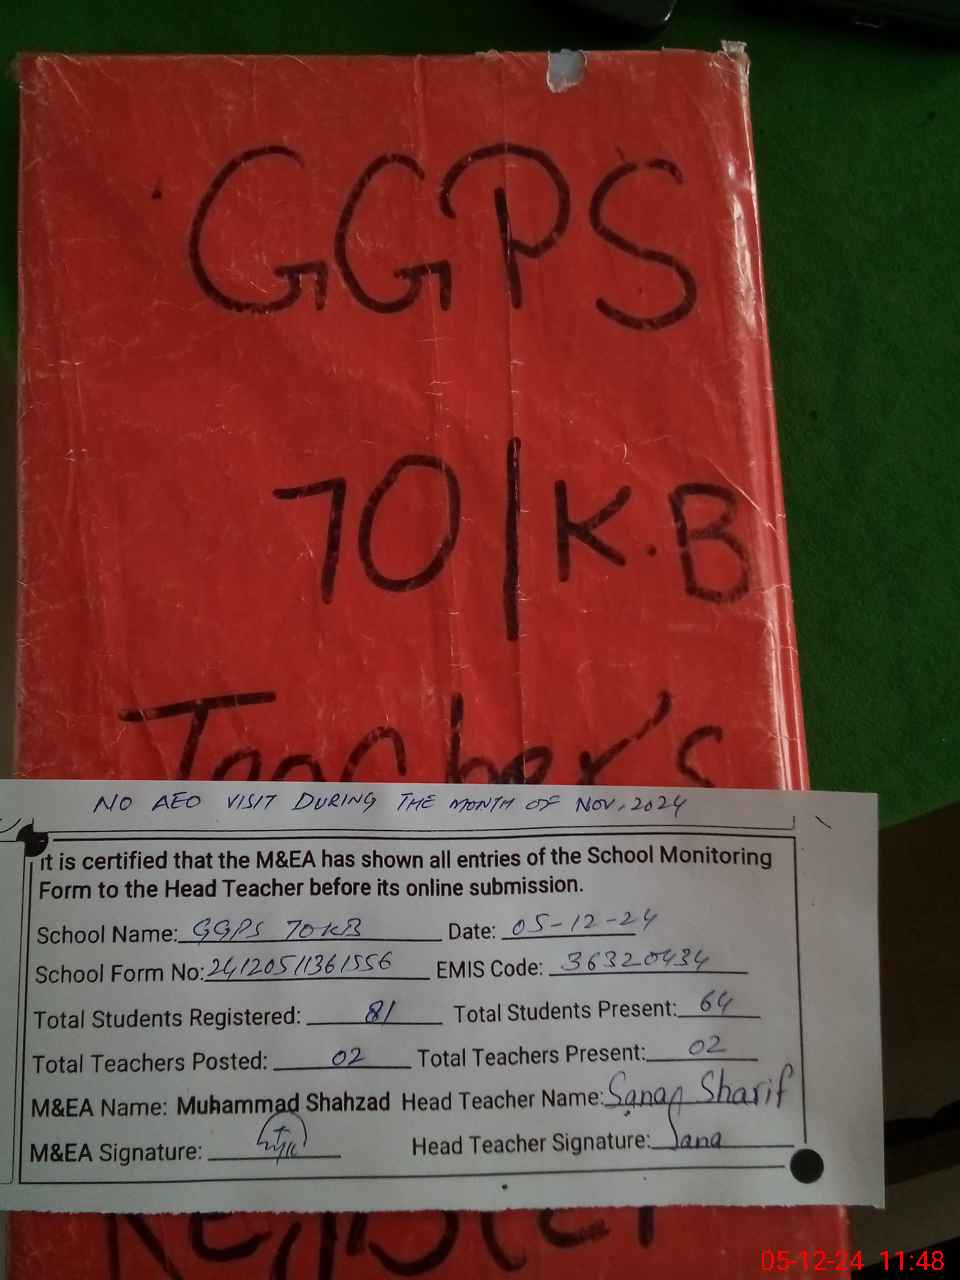 GGPS
70/K.B
Teacher's
NO AEO VISIT DURING THE MONTH OF NOV, 2024
it is certified that the M&EA has shown all entries of the School Monitoring
Form to the Head Teacher before its online submission.
School Name: GGPS 70 KB Date: 05-12-24
School Form No: 24120511361556 EMIS Code: 36320434
Total Students Registered: 81 Total Students Present: 64
Total Teachers Posted: 02 Total Teachers Present: 02
M&EA Name: Muhammad Shahzad Head Teacher Name: Sana Sharif
M&EA Signature: Head Teacher Signature: Sana
Register
05-12-24 11:48